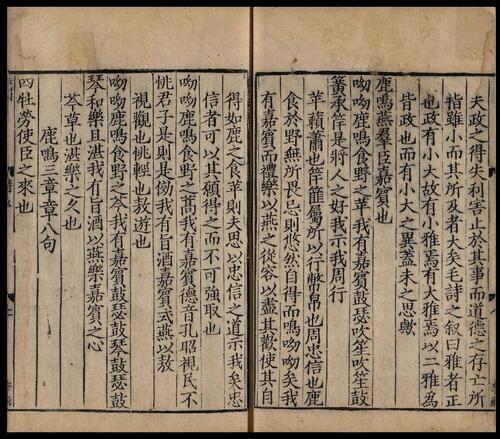 夫政之得失利害止於其事而道德之存亡所
指雖小而其所及者大矣毛詩之叙曰雅者正
也政有小大故有小雅焉有大雅焉以二雅為
皆政也而有小大之異蓋未之思歟
鹿鳴燕羣臣嘉賓也
呦呦鹿鳴食野之苹我有嘉賓鼓瑟吹笙吹笙鼓
簧承筐是將人之好我示我周行
苹藾蕭也筐篚屬所以行幣帛也周忠信也鹿
食於野無所畏忌則悠然自得而鳴呦呦矣我
有嘉賓而禮樂以燕之從容以盡其歡使其自
得如鹿之食苹則夫思以忠信之道示我矣忠
信者可以其願得之而不可強取也
呦呦鹿鳴食野之蒿我有嘉賓德音孔昭視民不
恌君子是則是傚我有旨酒嘉賓式燕以敖
視觀也恌輕也敖遊也
呦呦鹿鳴食野之芩我有嘉賓鼓瑟鼓琴鼓瑟鼓
琴和樂且湛我有旨酒以燕樂嘉賓之心
芩草也湛樂之久也
鹿鳴三章章八句
四牡勞使臣之來也